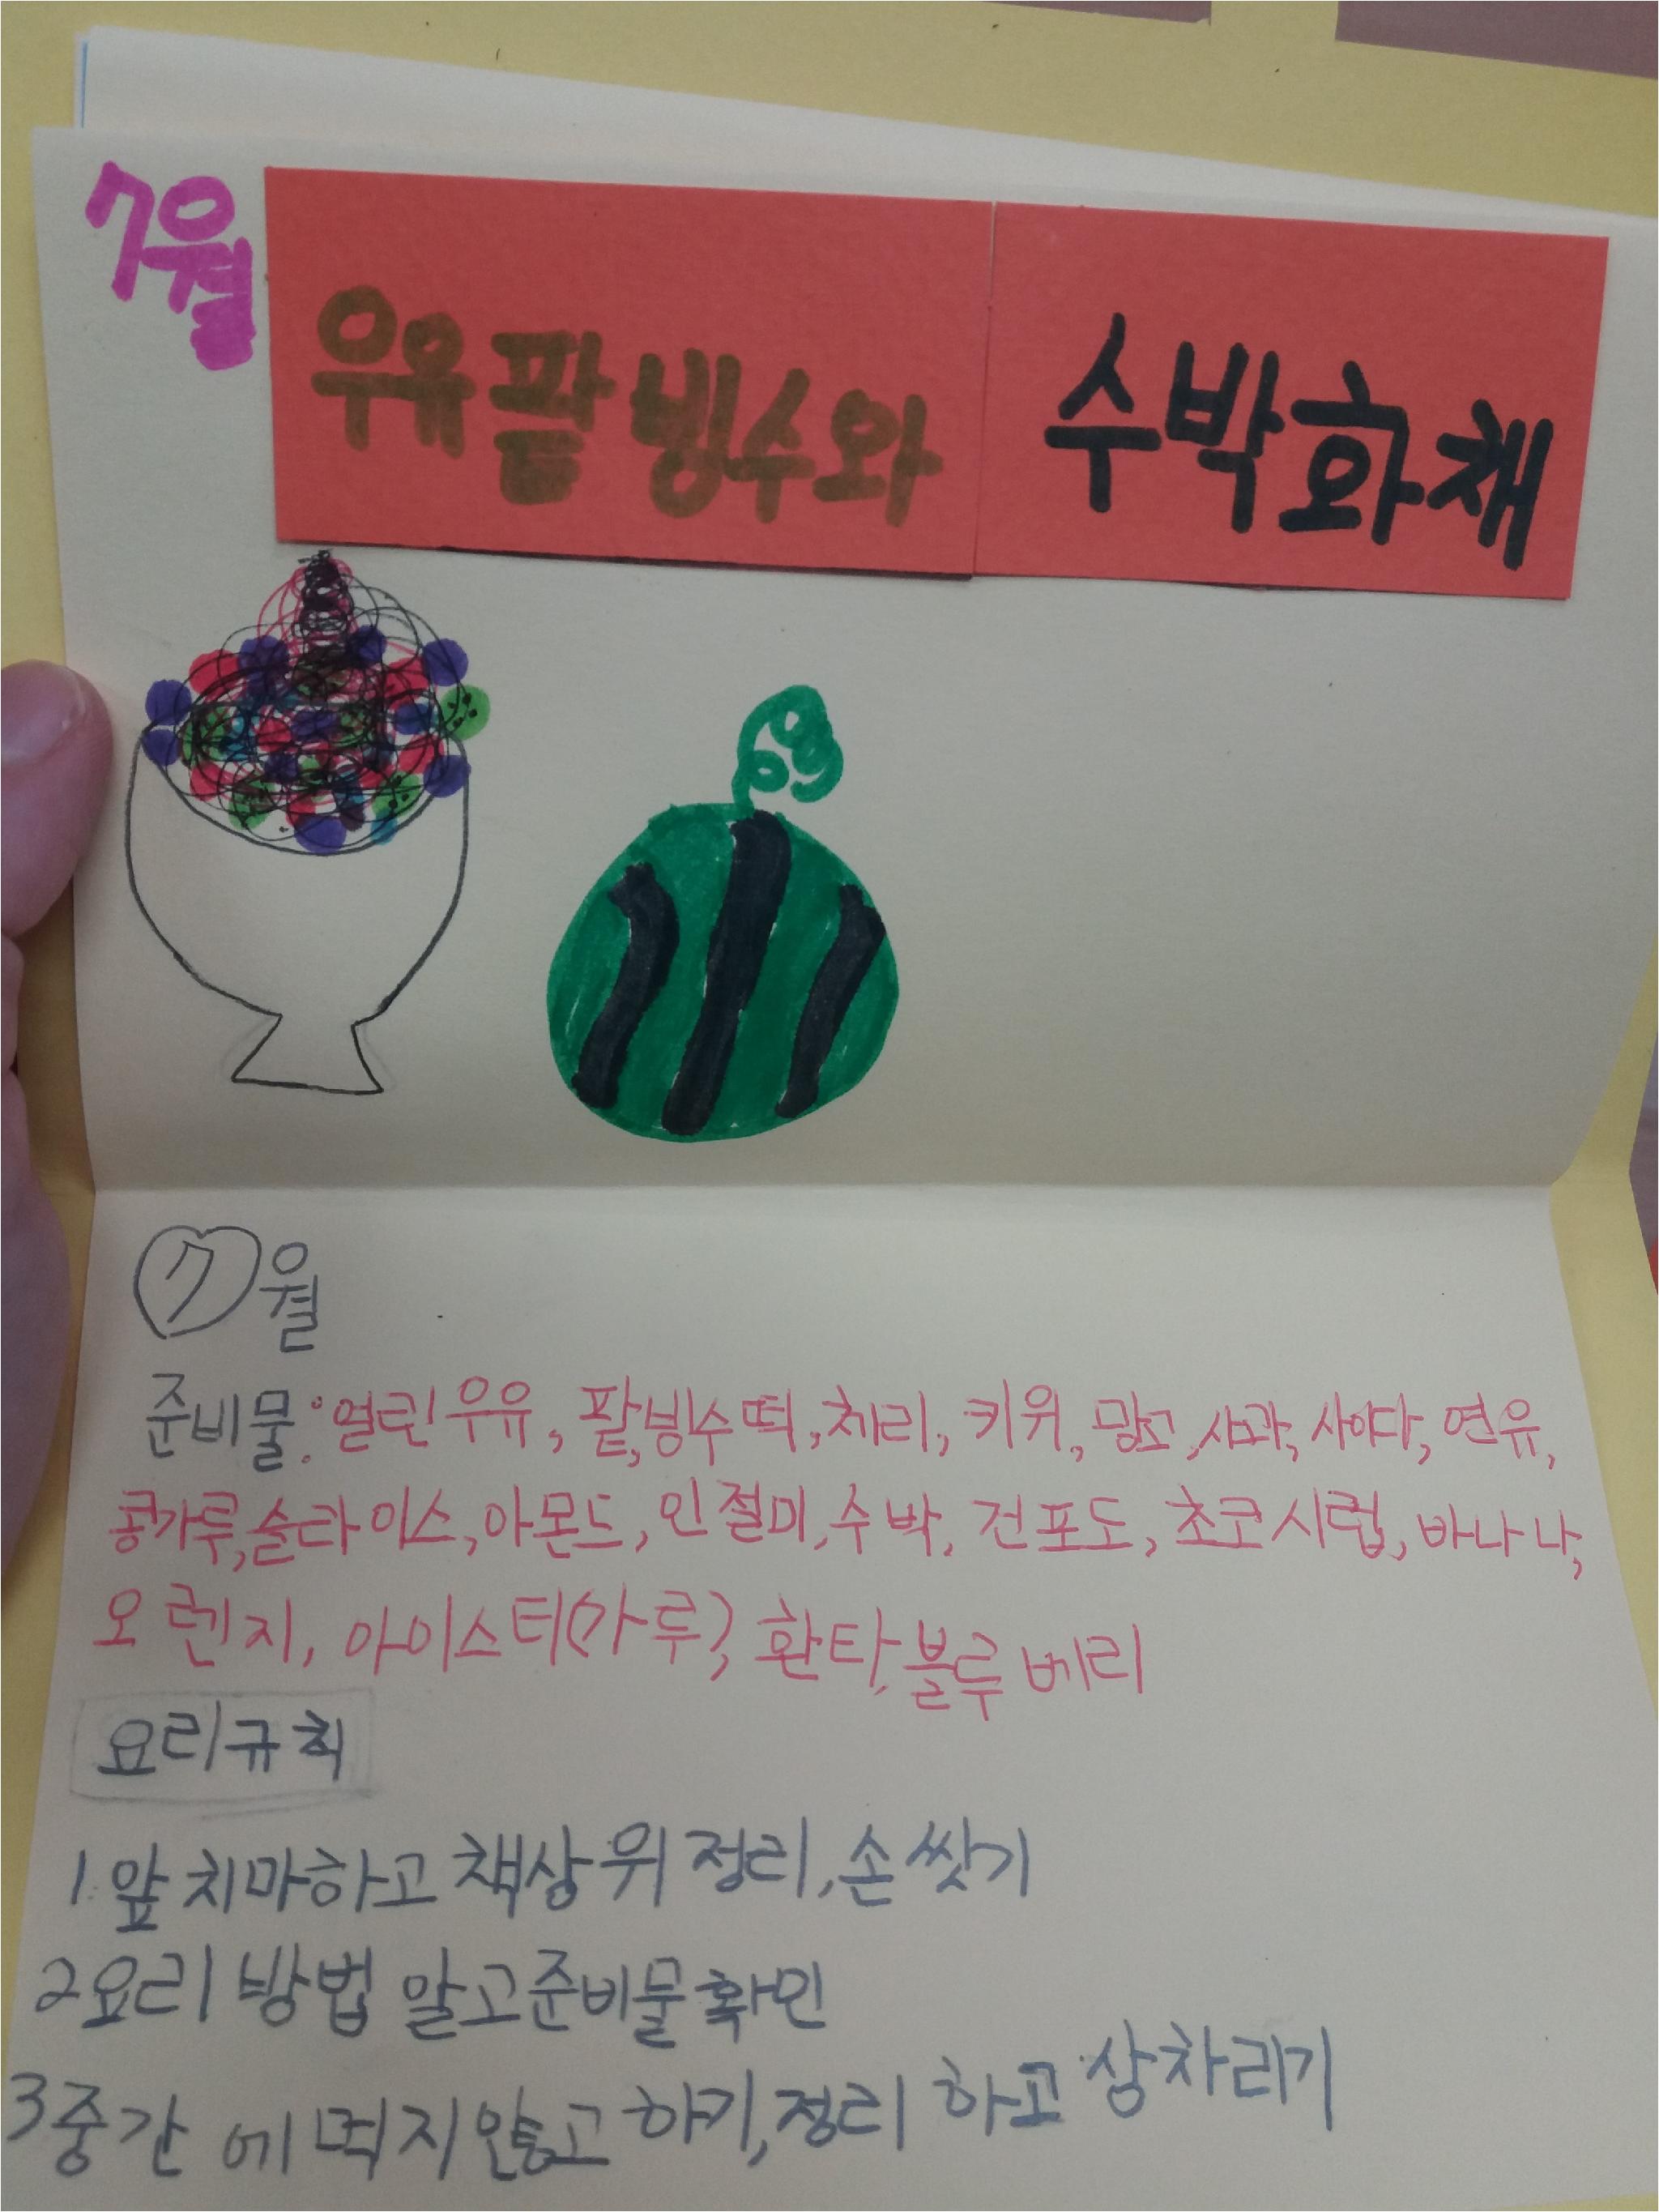 7월
우유팥빙수와 수박화채
7월
준비물: 얼린우유, 팥,빙수떡,체리,키위,망고,사과,사이다,연유,
콩가루,슬라이스,아몬드,인절미,수박,건포도,초코시럽,바나나,
오렌지,아이스티(가루),환타,블루베리
요리규칙
1.앞치마하고 책상위정리,손씻기
2요리방법 알고준비물확인
3중간에먹지않고하기,정리하고상차리기